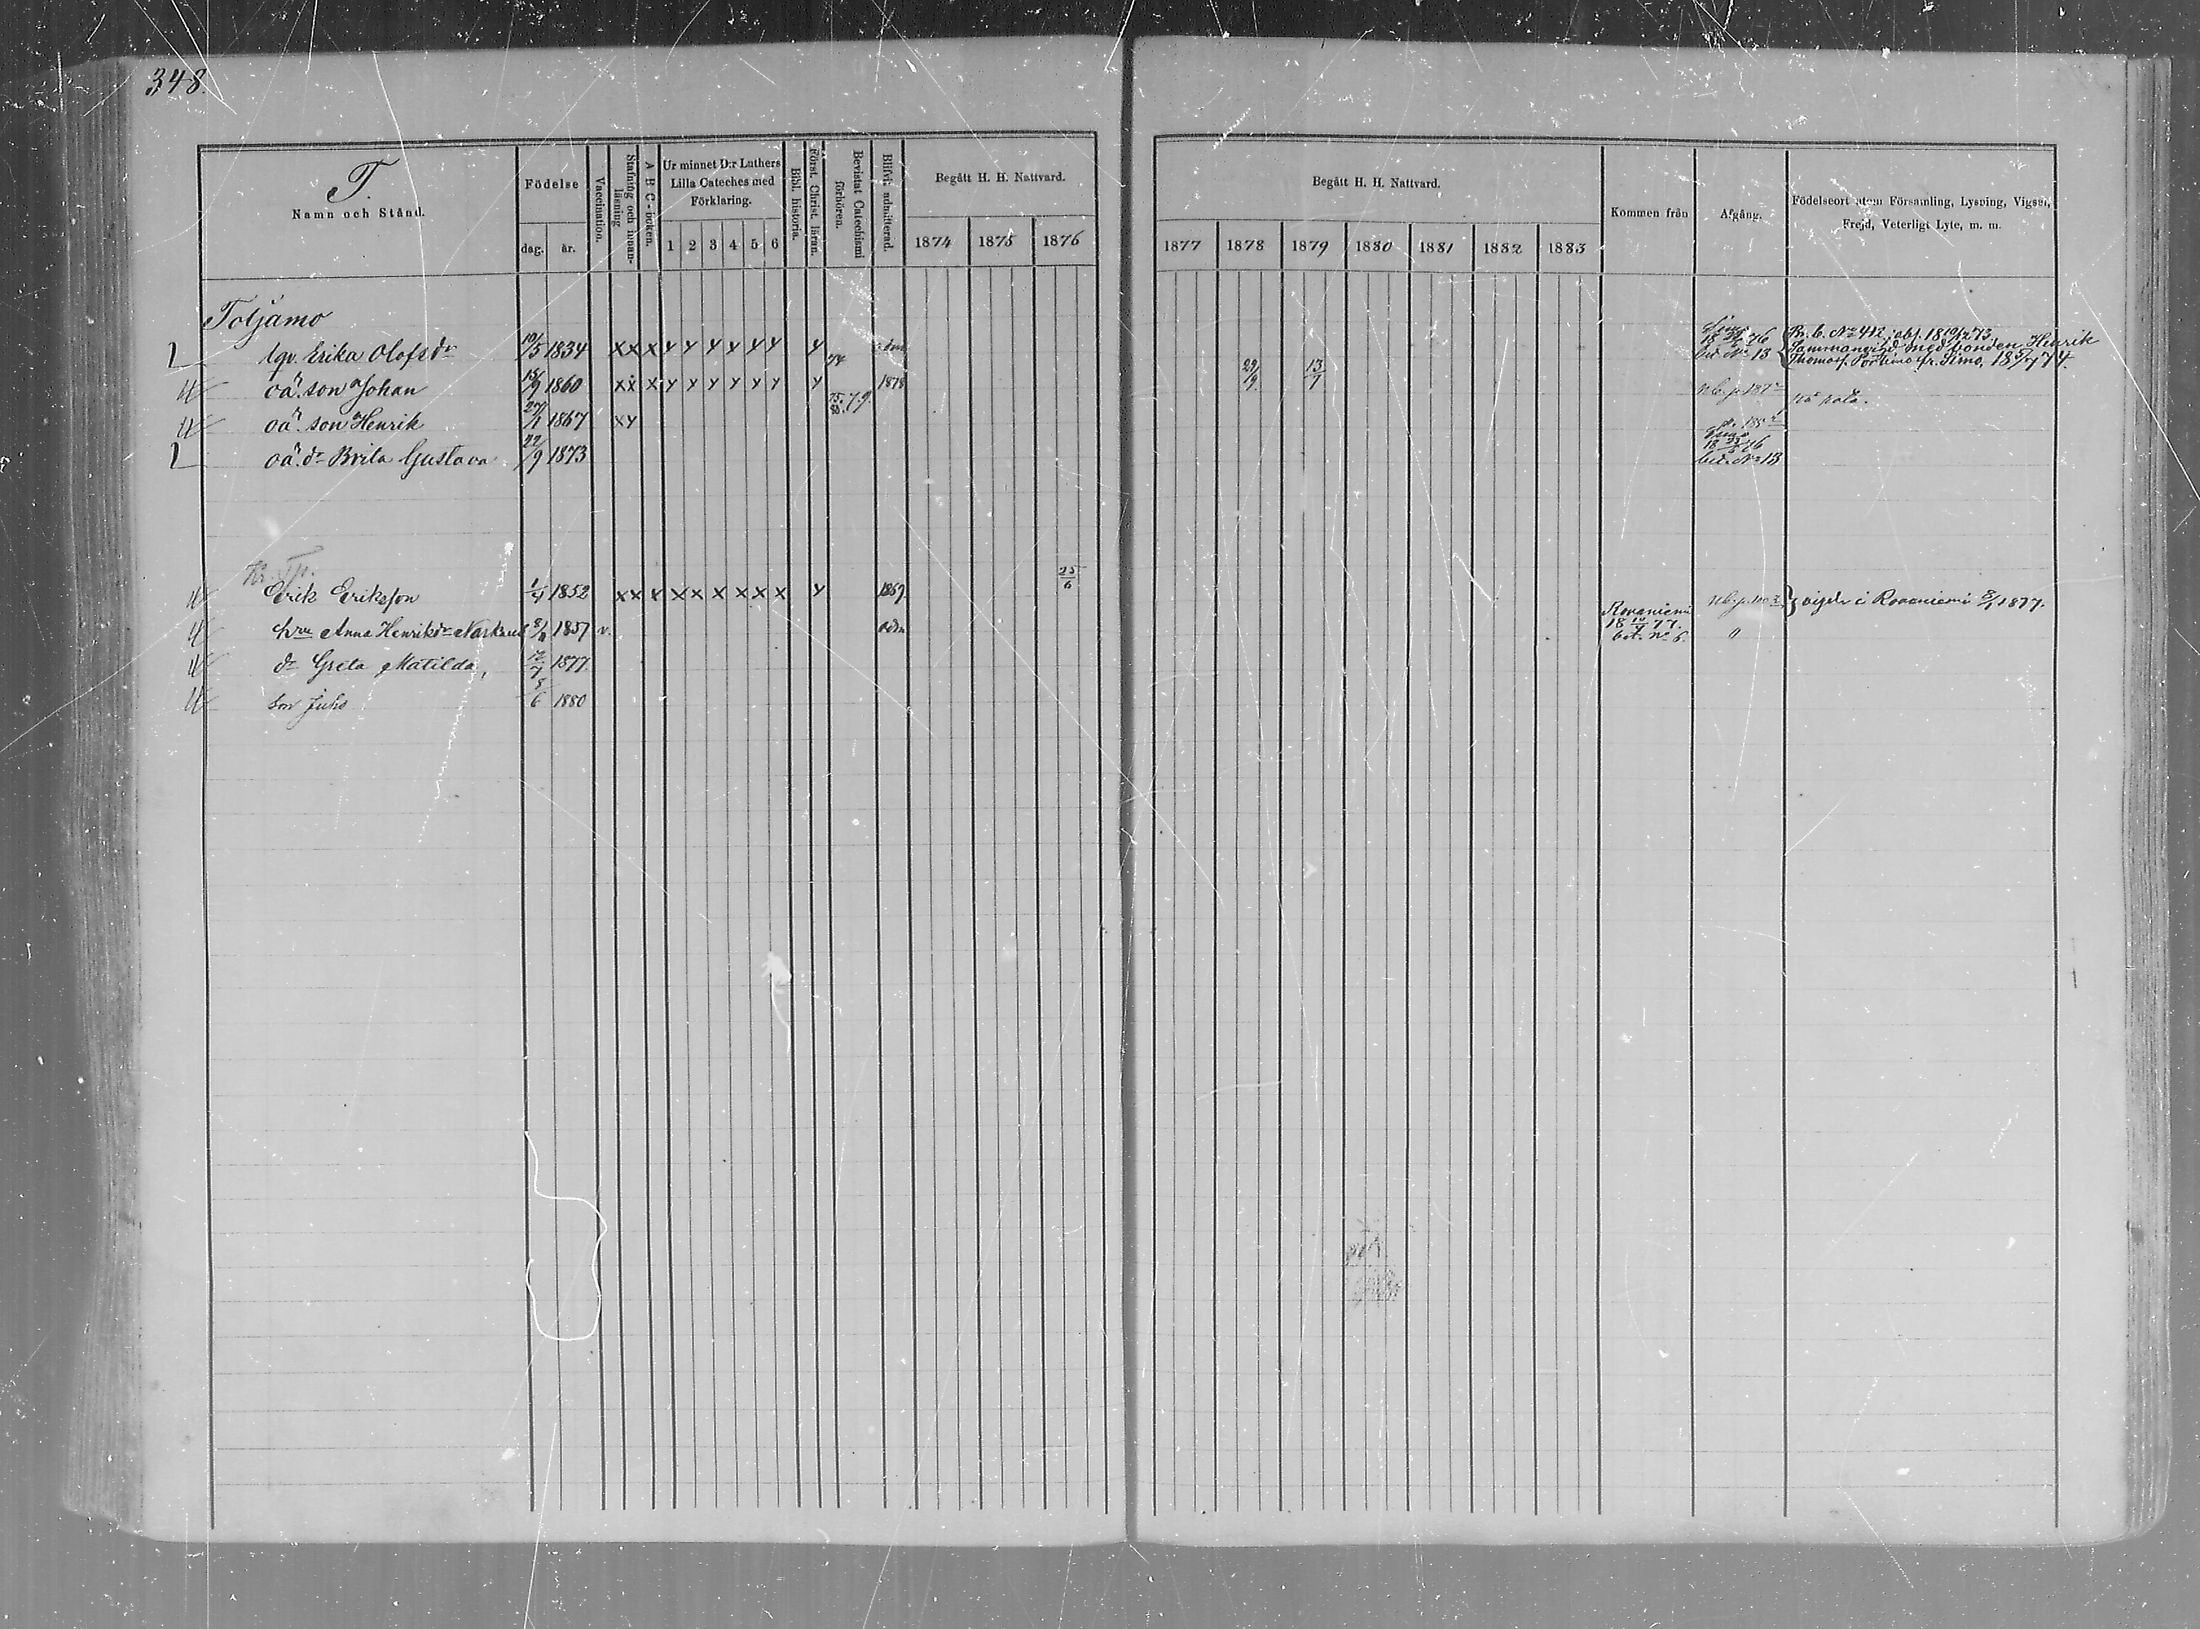 348.
T.
Namn och Stånd.
Födelse
dag. år.
Vaccination.
Stafning och innanläsning
A B C-boken.
Ur minnet D:r Luthers Lilla Cateches med Förklaring.
1 2 3 4 5 6
Bibl. historia.
Först. Christ. läran.
Bevistat Catechismi förhören.
Blifvit admitterad.
Begått H. H. Nattvard.
1874 1875 1876
Begått H. H. Nattvard.
1877 1878 1879 1880 1881 1882 1883
Kommen från
Afgång.
Födelseort utom Församling, Lysning, Vigsel, Frejd, Veterligt Lyte, m. m.
Toljamo
Erika Olofsdr 10/5 1834 x x x y y y y y y y 74
18 76 bet. No 13
Sammanvigd med bonden Henrik
Thomasf. Portimo fr. Simo, 18 74.
oä. son Johan 15/9 1860 x x x y y y y y y y 1878 29/9 13/7
oä. son Henrik 27/1 1867 x y
oä. dr Brita Gustava 22/9 1873
18 76
bet. No 13
Erik Eriksson 1/4 1852 x x x x x x x x x y 1869 25/6
vigde i Rovaniemi 1877.
hru Anna Henriksdr 1857 v. adm
Rovaniemi
18 77.
bet. No 6.
dr Greta Matilda, 12/7 1877
son Juho 5/6 1880